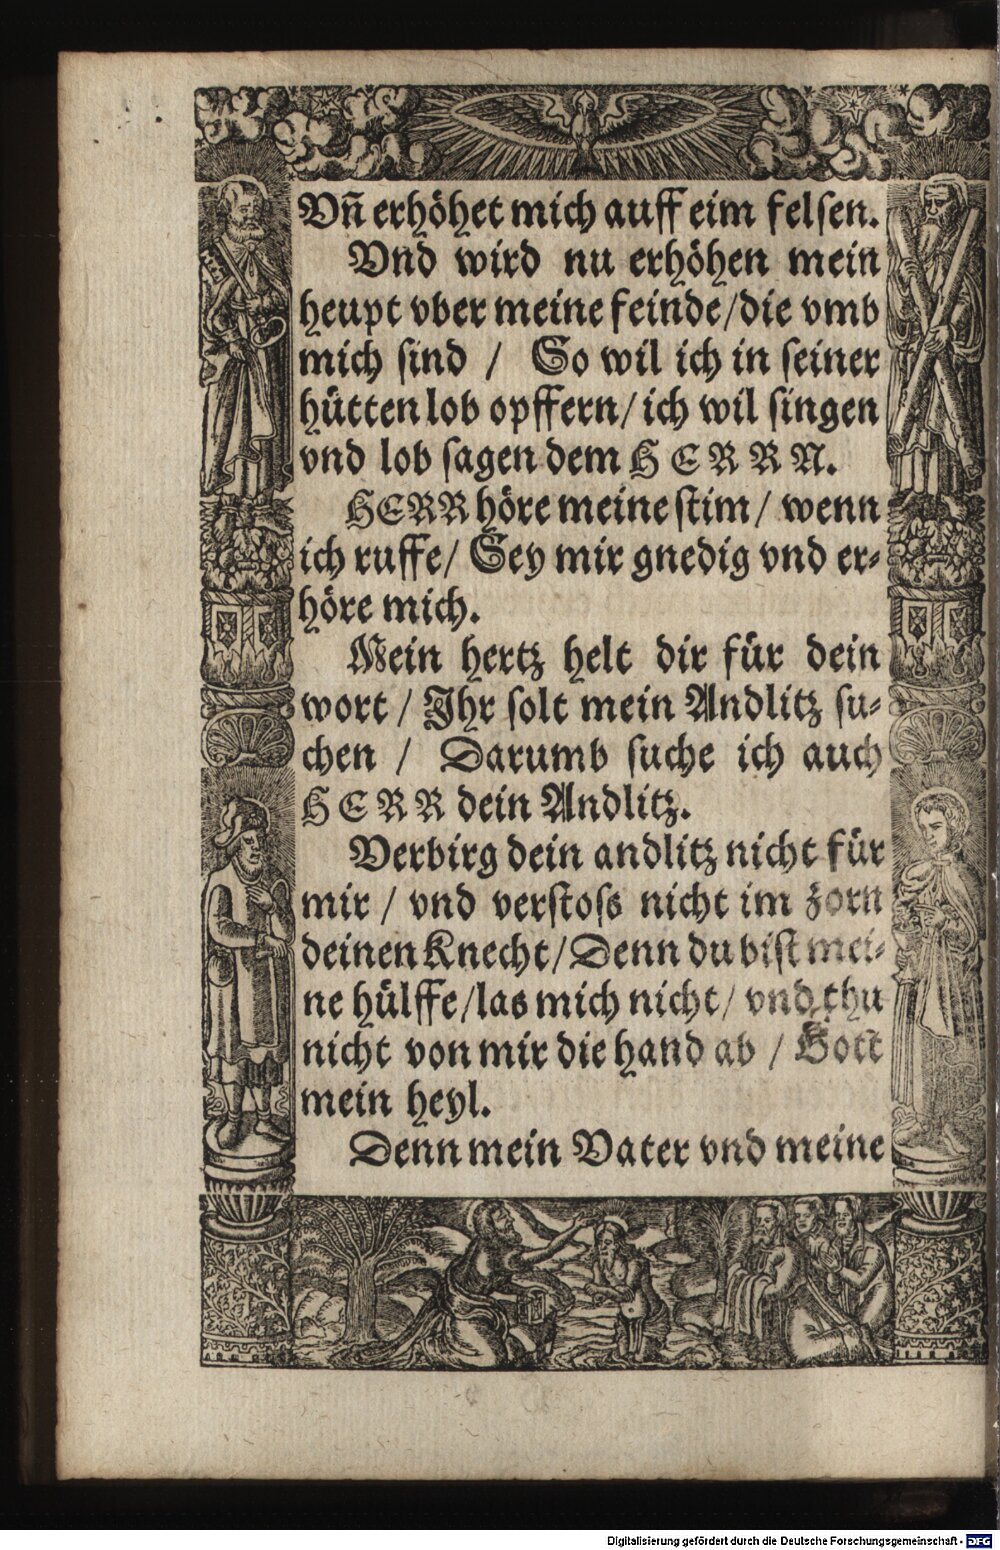 Vñ erhöhet mich auff eim felsen.
Vnd wird nu erhöhen mein
heupt vber meine feinde/die vmb
mich sind / So wil ich in seiner
hütten lob opffern/ ich wil singen
vnd lob sagen dem HERRN.
HERR höre meine stim / wenn
ich ruffe/ Sey mir gnedig vnd er-
höre mich.
Mein hertz helt dir für dein
wort / Ihr solt mein Andlitz su-
chen / Darumb suche ich auch
HERR dein Andlitz.
Verbirg dein andlitz nicht für
mir / vnd verstoss nicht im zorn
deinen Knecht/Denn du bist mei-
ne hülffe/las mich nicht/ vnd thu
nicht von mir die hand ab / Gott
mein heyl.
Denn mein Vater vnd meine
Digitalisierung gefördert durch die Deutsche Forschungsgemeinschaft - DFG